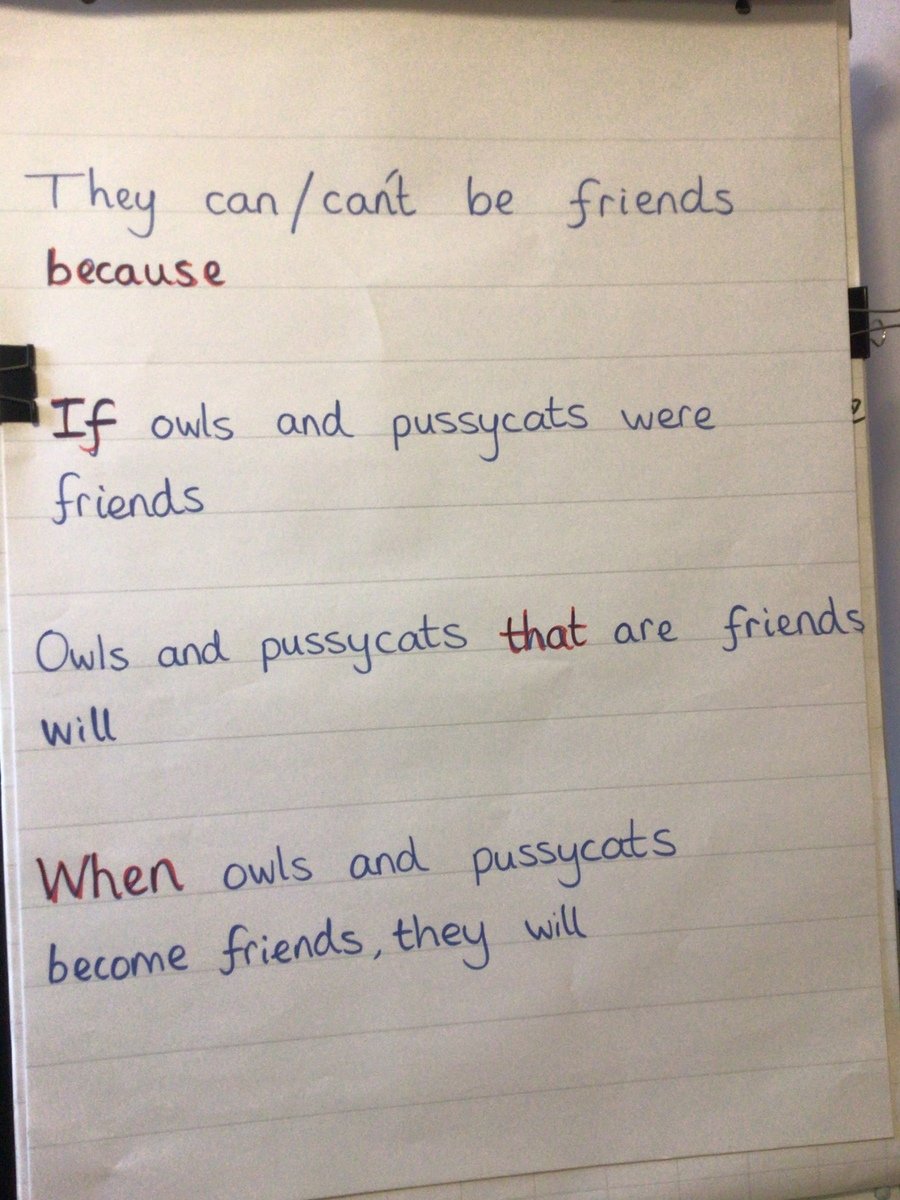 They can/can't be friends
because
If owls and pussycats were
friends
Owls and pussycats that are friends
will
When owls and pussycats
become friends, they will